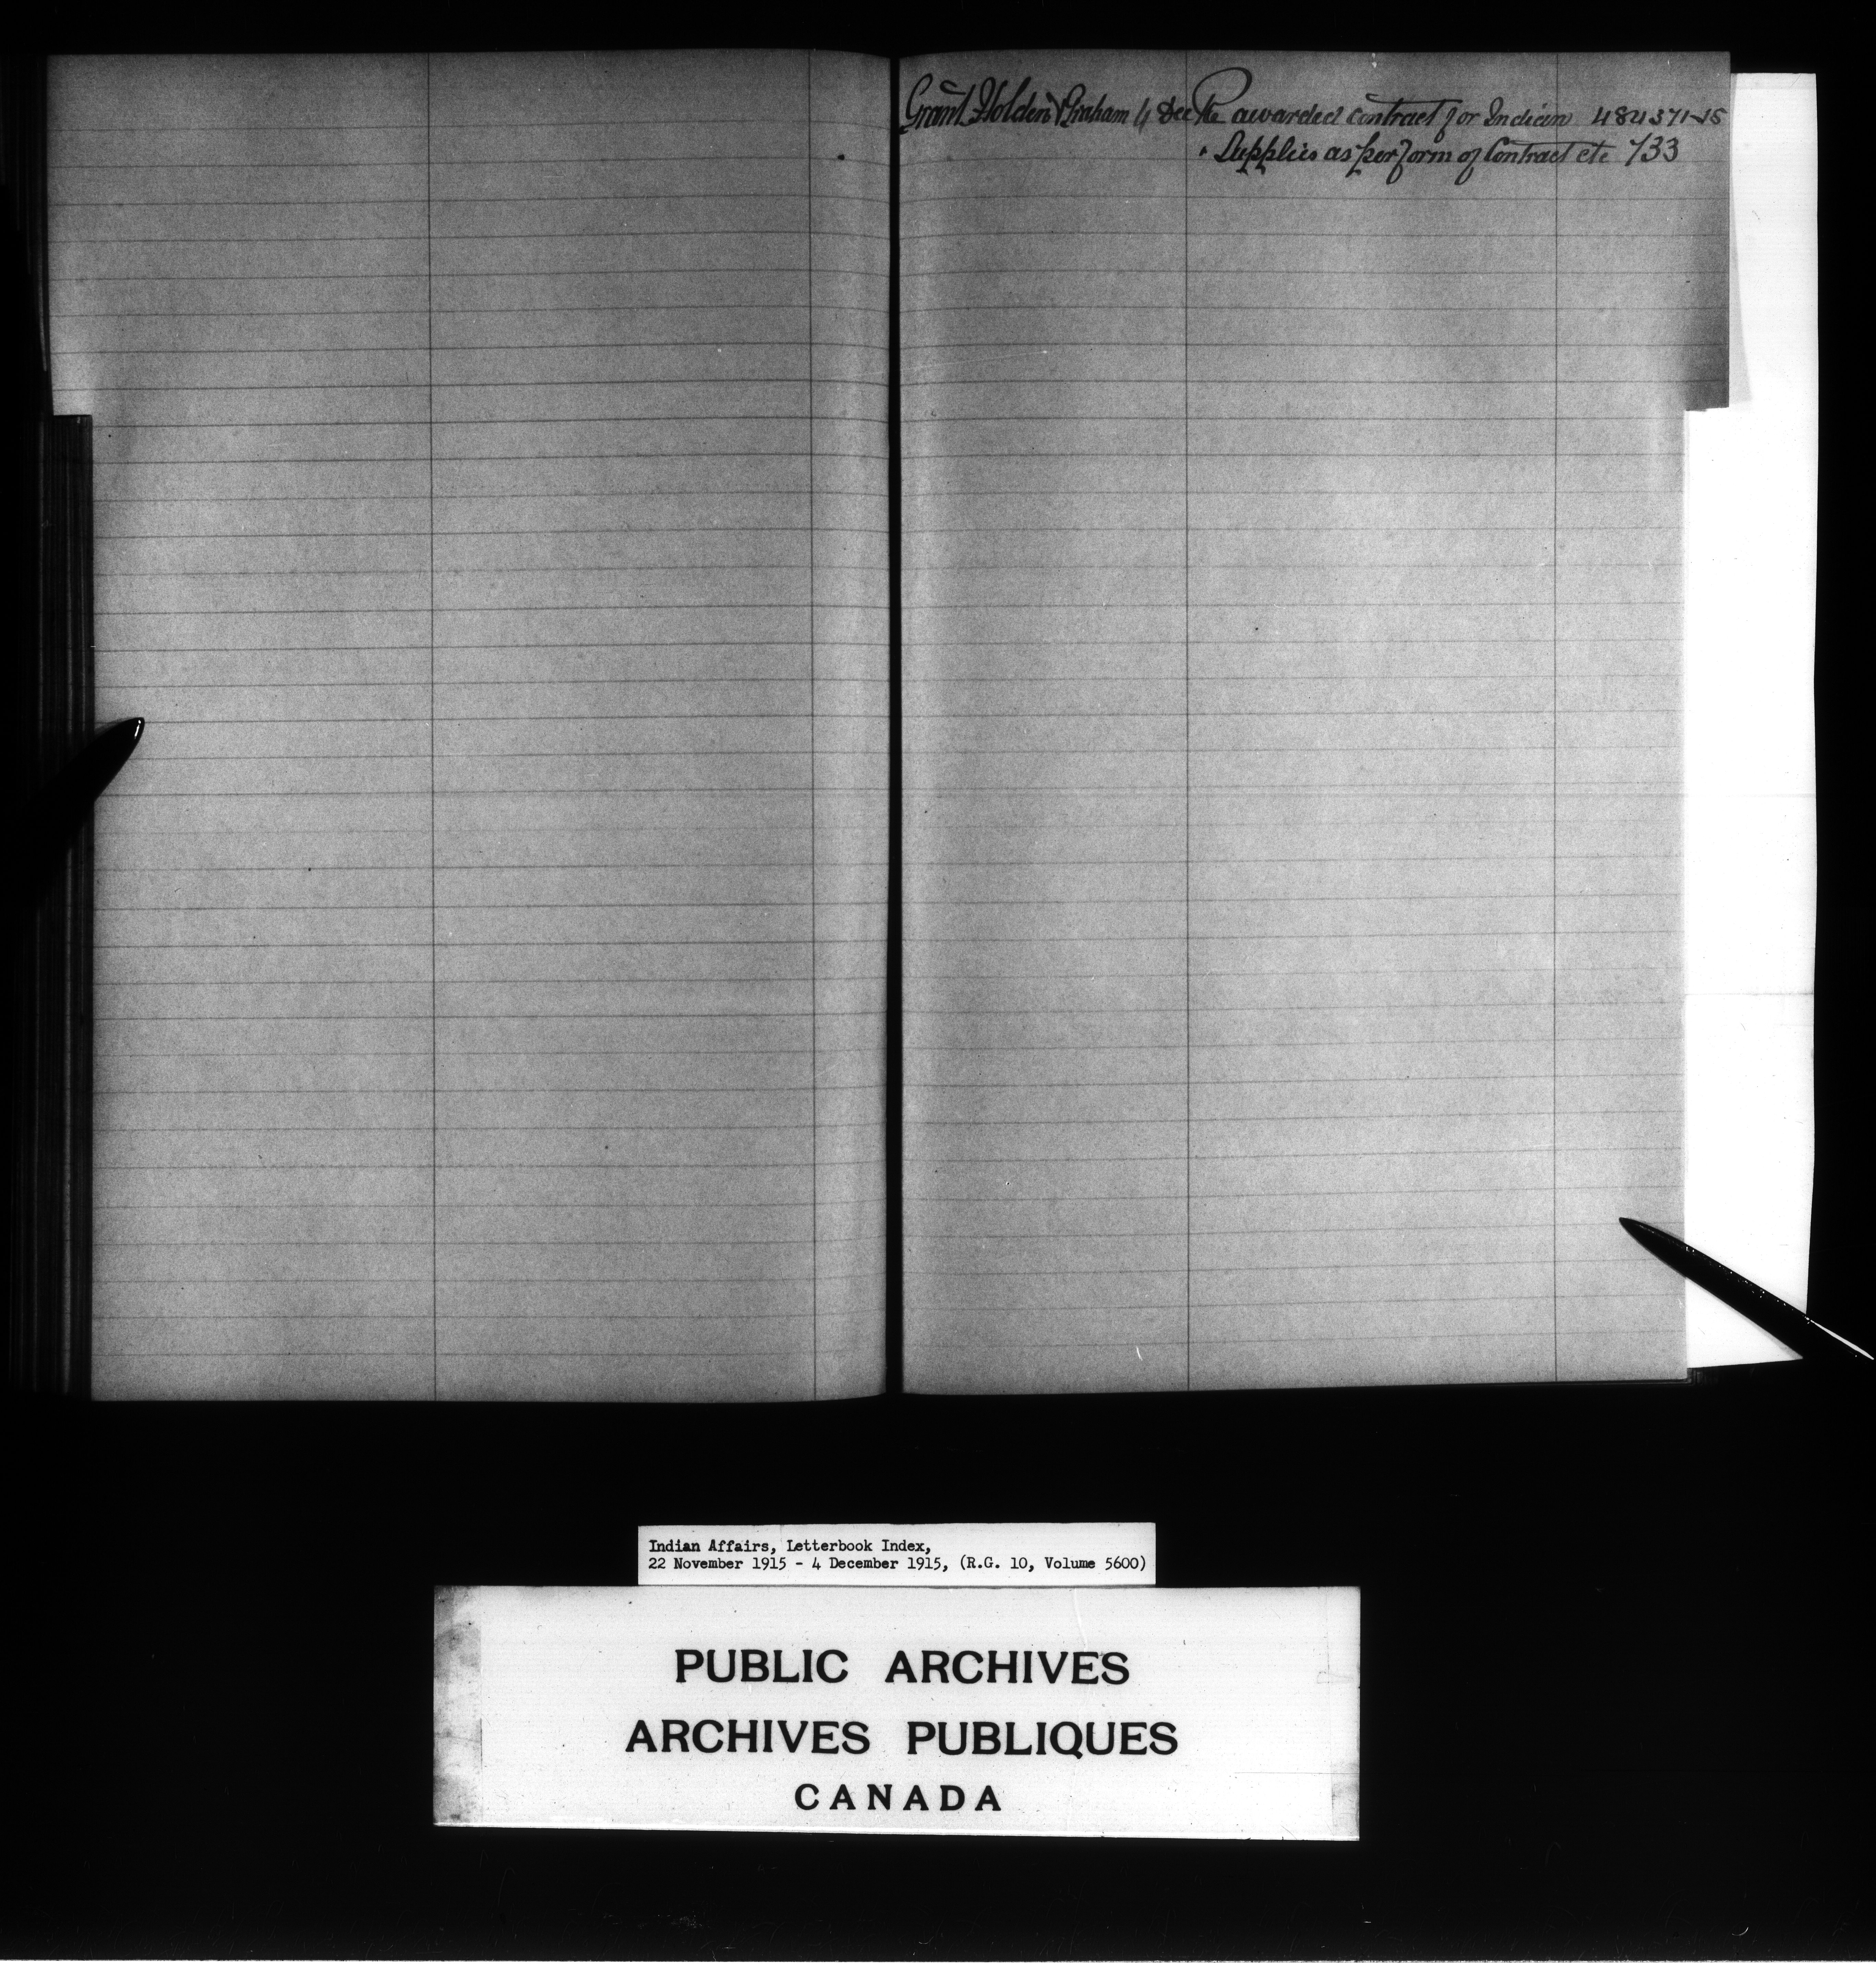 Grant Holden & Graham 4 Dec Re awarded contract for Indian 484371-15
" Supplies as per form of Contract etc 733
Indian Affairs, Letterbook Index,
22 November 1915 - 4 December 1915, (R.G. 10, Volume 5600)
PUBLIC ARCHIVES
ARCHIVES PUBLIQUES
CANADA